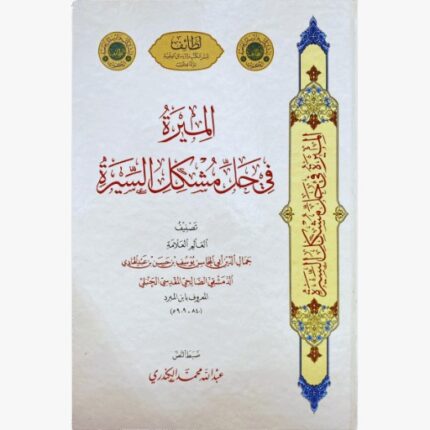 لطائف
لنشر الكتب والرسائل العلمية
دولة الكويت
الميرة
في حل مشكل السيرة
تصنيف
العالم العلامة
جمال الدين أبي المحاسن يوسف بن حسن بن عبد الهادي
الدمشقي الصالحي المقدسي الحنبلي
المعروف بابن المبرد
(٨٤٠ - ٩٠٩ هـ)
ضبط النص
عبد الله محمد الكندري
الميرة في حل مشكل السيرة